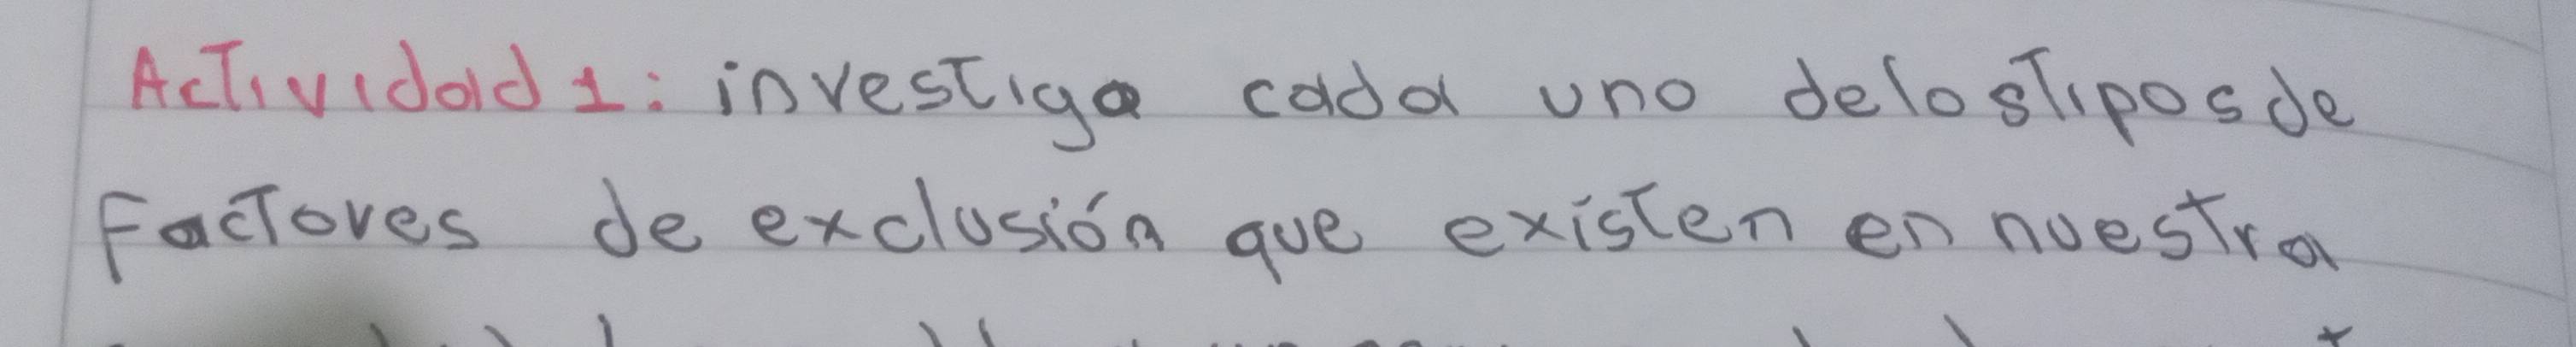 Actividad 1: investiga cada uno delostiposde
factores de exclusión que existen en nuestra